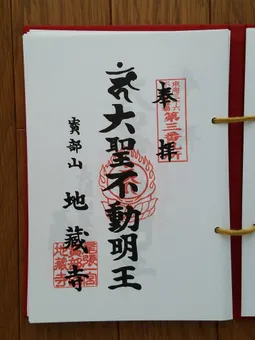 奉拝
第三番
大聖不動明王
寳部山 地蔵寺